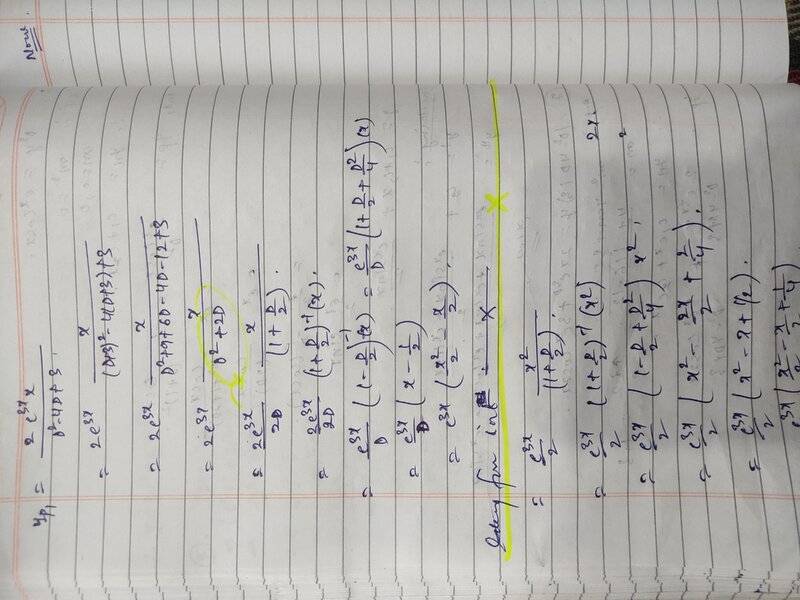 Now.
y_{p1} = \frac{2e^{3x} x}{D^2-4D+3}.
= 2e^{3x} \frac{x}{(D+3)^2-4(D+3)+3}
= 2e^{3x} \frac{x}{D^2+9+6D-4D-12+3}
= 2e^{3x} \frac{x}{D^2+2D}
= \frac{2e^{3x}}{2D} \frac{x}{(1+\frac{D}{2})}.
= \frac{2e^{3x}}{2D} (1+\frac{D}{2})^{-1}(x).
= \frac{e^{3x}}{D} (1-\frac{D}{2})^{-1}(x) = \frac{e^{3x}}{D} (1+\frac{D}{2}+\frac{D^2}{4})(x)
= \frac{e^{3x}}{D} (x-\frac{1}{2})
= e^{3x} (\frac{x^2}{2}-\frac{x}{2}).
x x
= \frac{e^{3x}}{2} \frac{x^2}{(1+\frac{D}{2})}.
= \frac{e^{3x}}{2} (1+\frac{D}{2})^{-1} (x^2) 2x.
= \frac{e^{3x}}{2} (1-\frac{D}{2}+\frac{D^2}{4}) x^2. 2
= \frac{e^{3x}}{2} (x^2-\frac{2x}{2}+\frac{2}{4}).
= \frac{e^{3x}}{2} (x^2-x+1/2).
= e^{3x} (\frac{x^2}{2}-\frac{x}{2}+\frac{1}{4})